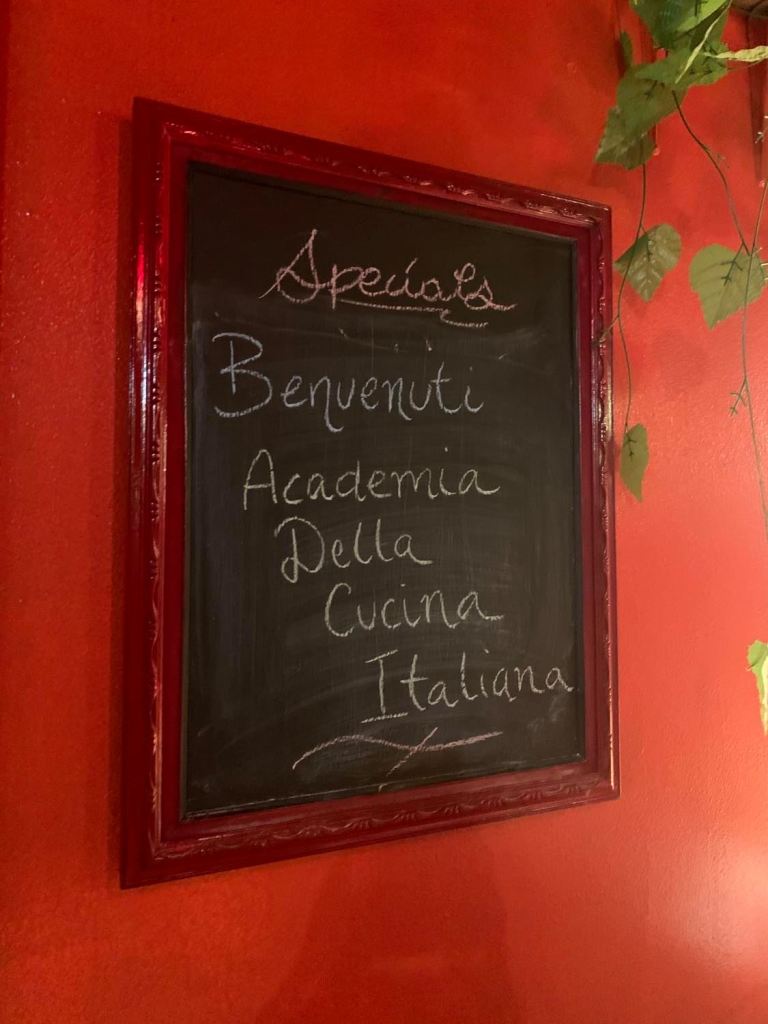 Specials
Benvenuti
Academia
Della
Cucina
Italiana